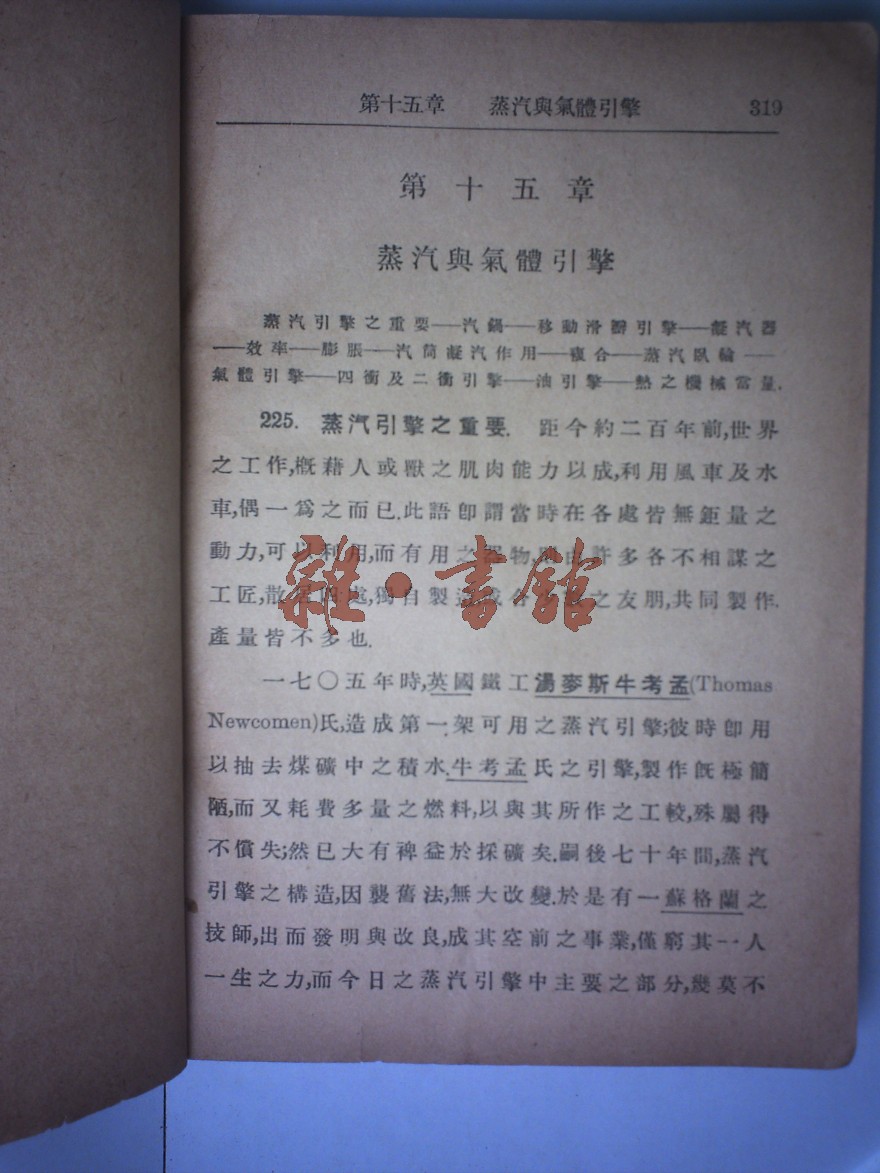 第十五章 蒸汽與氣體引擎 319
第十五章
蒸汽與氣體引擎
蒸汽引擎之重要——汽鍋——移動滑瓣引擎——凝汽器
——效率——膨脹——汽筒凝汽作用——複合——蒸汽臥輪——
氣體引擎——四衝及二衝引擎——油引擎——熱之機械當量.
225. 蒸汽引擎之重要. 距今約二百年前,世界
之工作,概藉人或獸之肌肉能力以成,利用風車及水
車,偶一爲之而已.此語卽謂當時在各處皆無鉅量之
動力,可以利用,而有用之物,許多各不相謀之
工匠,散處,獨自製造,或合之友朋,共同製作.
產量皆不多也.
一七〇五年時,英國鐵工湯麥斯牛考孟(Thomas
Newcomen)氏,造成第一架可用之蒸汽引擎;彼時卽用
以抽去煤礦中之積水.牛考孟氏之引擎,製作旣極簡
陋,而又耗費多量之燃料,以與其所作之工較,殊屬得
不償失;然已大有裨益於採礦矣.嗣後七十年間,蒸汽
引擎之構造,因襲舊法,無大改變.於是有一蘇格蘭之
技師,出而發明與改良,成其空前之事業,僅窮其一人
一生之力,而今日之蒸汽引擎中主要之部分,幾莫不
雜·書館